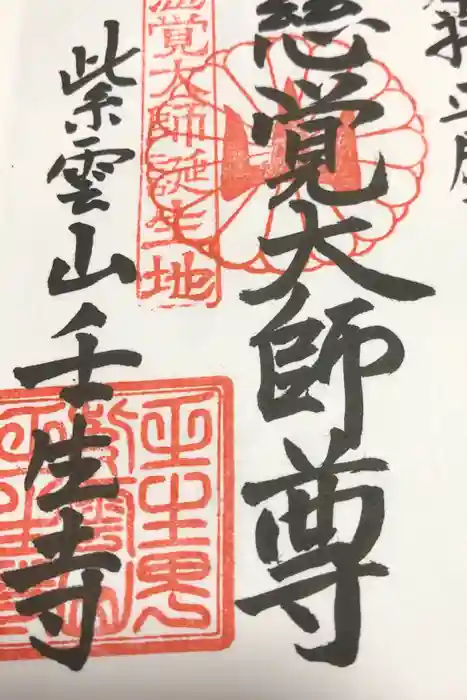 慈覚大師尊
慈覚大師誕生地
紫雲山壬生寺